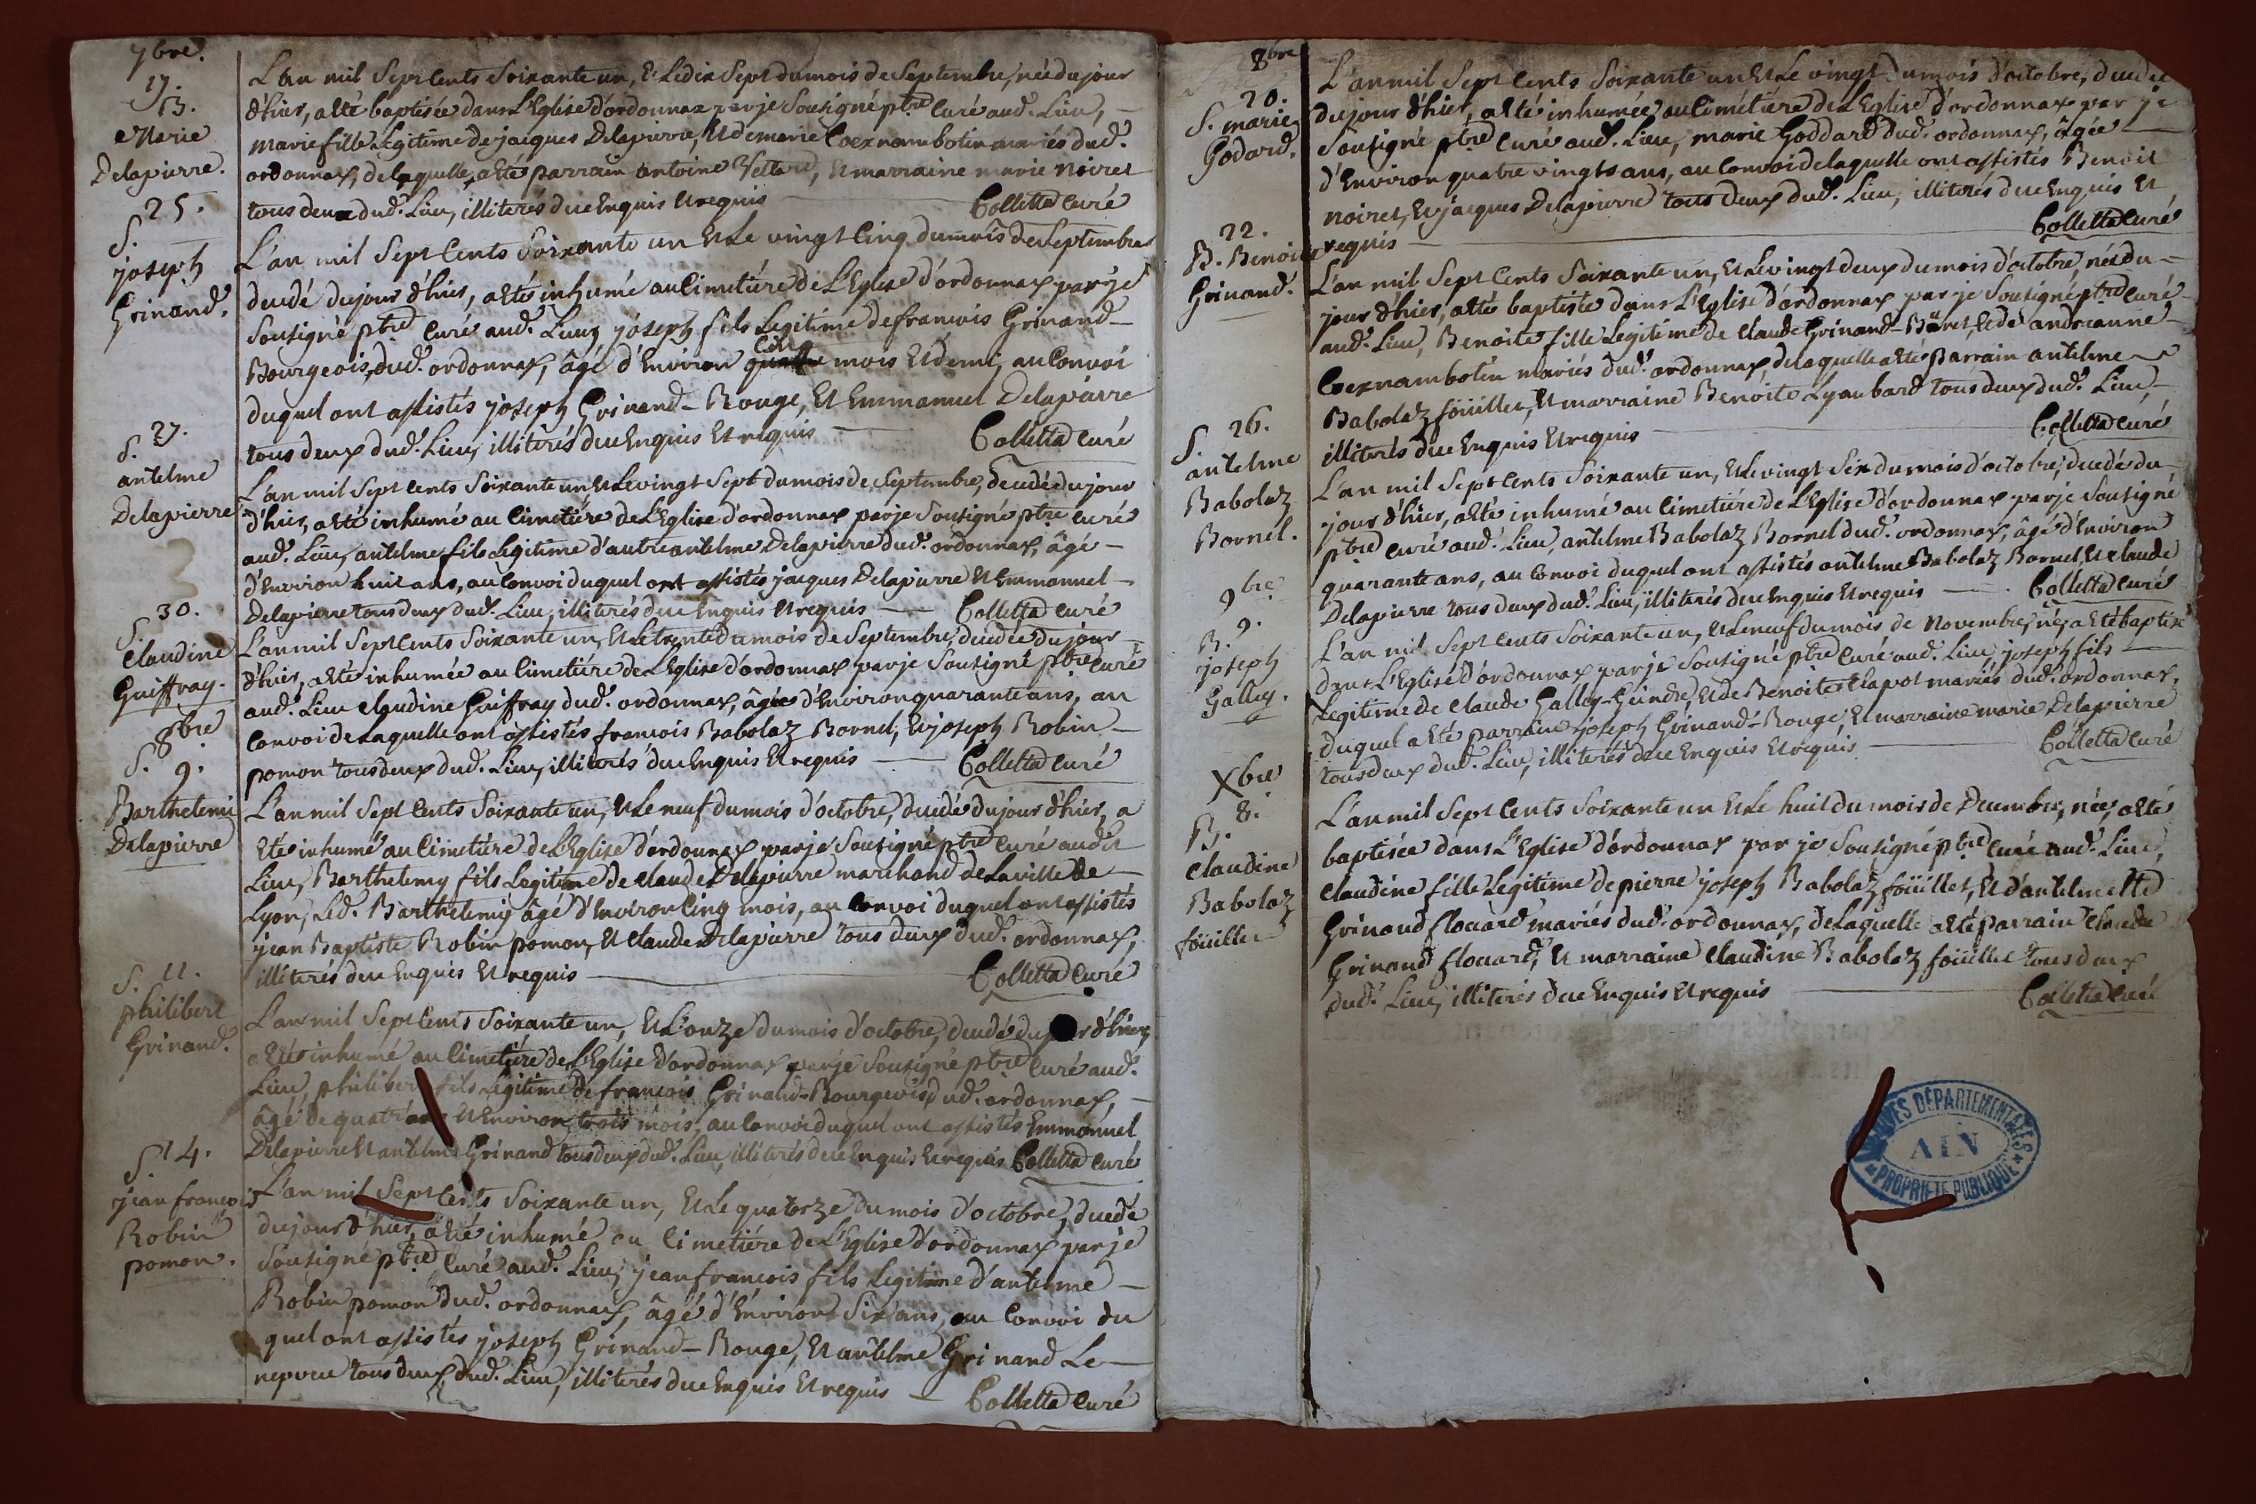 7bre.
17.
B.
Marie
Delapierre.
L'an mil Sept Cents Soixante un, Et Ledix Sept dumois de Septembre, née du jour
d'hier, a Eté baptisée dans L'Eglise d'ordonnax par je Sousigné ptre Curé aud. Lieu,
marie fille Legitime de jacques Delapierre, Et de marie Coexnambotin mariés dud.
ordonnax, de laquelle a Eté parrain antoine Vettard, Et marraine marie Noiret
tous deux dud. Lieu, illiterés due Enquis Et requis — Colletta Curé
25.
S.
joseph
Grinand.
L'an mil Sept Cents Soixante un Et Le vingt Cinq dumois de Septembre
decedé du jour d'hier, a Eté inhumé au Cimetiére de L'Eglise d'ordonnax par je
Sousigné ptre Curé aud. Lieu, joseph fils Legitime de francois Grinand-
Bourgeois, dud. ordonnax, âgé d'Environ Cinq mois Et demi, au Convoi
duquel ont assistés joseph Grinand-Rouge, Et Emmanuel Delapierre
tous deux dud. Lieu, illiterés due Enquis Et requis — Colletta Curé
27.
S.
antelme
Delapierre
L'an mil Sept Cents Soixante un Et Le vingt Sept dumois de Septembre, decedé du jour
d'hier, a Eté inhumé au Cimetiére de L'Eglise d'ordonnax par je Sousigné ptre Curé
aud. Lieu, antelme fils Legitime d'autre antelme Delapierre dud. ordonnax, âgé
d'Environ huit ans, au Convoi duquel ont assistés jacques Delapierre Et Emmanuel
Delapierre tous deux dud. Lieu, illiterés due Enquis Et requis — Colletta Curé
30.
S.
Claudine
Guiffray.
L'an mil Sept Cents Soixante un, Et Le trente dumois de Septembre, decedée du jour
d'hier, a Eté inhumée au Cimetiére de L'Eglise d'ordonnax par je Sousigné ptre Curé
aud. Lieu Claudine Guiffray dud. ordonnax, âgée d'Environ quarante ans, au
Convoi de Laquelle ont assistés francois Babolaz Bornel, Et joseph Robin
pomon tous deux dud. Lieu, illiterés due Enquis Et requis — Colletta Curé
8bre
S. 9.
Barthelemi
Delapierre
L'an mil Sept Cents Soixante un, Et Le neuf dumois d'octobre, decedé du jour d'hier, a
Eté inhumé au Cimetiére de L'Eglise d'ordonnax par je Sousigné ptre Curé audit
Lieu, Barthelemy fils Legitime de Claude Delapierre marchand de La ville de
Lyon, Led. Barthelemy âgé d'Environ Cinq mois, au Convoi duquel ont assistés
jean Baptiste Robin pomon, Et Claude Delapierre tous deux dud. ordonnax,
illiterés due Enquis Et requis — Colletta Curé
S. 11.
philibert
Grinand.
L'an mil Sept Cents Soixante un, Et L'onze dumois d'octobre, decedé du d'hier,
a Eté inhumé au Cimetiére de L'Eglise d'ordonnax par je Sousigné ptre Curé aud.
Lieu, philibert fils Legitime de francois Grinand-Bourgeois dud. ordonnax,
âgé de quatre ans Et Environ trois mois, au Convoi duquel ont assistés Emmanuel
Delapierre Et antelme Grinand tous deux dud. Lieu, illiterés due Enquis Et requis Colletta Curé
S. 14.
jean francois
Robin
pomon.
L'an mil Sept Cents Soixante un, Et Le quatorze dumois d'octobre, decedé
du jour d'hier, a Eté inhumé au Cimetiére de L'Eglise d'ordonnax par je
Sousigné ptre Curé aud. Lieu, jean francois fils Legitime d'antelme
Robin pomon dud. ordonnax, âgé d'Environ Six ans, au Convoi du
quel ont assistés joseph Grinand-Rouge, Et antelme Grinand Le
neveu tous deux dud. Lieu, illiterés due Enquis Et requis — Colletta Curé
8bre
20.
S. marie
Godard.
L'an mil Sept Cents Soixante un Et Le vingt dumois d'octobre, decedée
du jour d'hier, a Eté inhumée au Cimétiére de L'Eglise d'ordonnax par je
Sousigné ptre Curé aud. Lieu, marie Goddard dud. ordonnax, âgée
d'Environ quatre vingts ans, au Convoi de laquelle ont assistés Benoit
Noiret, Et jacques Delapierre tous deux dud. Lieu, illiterés due Enquis Et
requis — Colletta Curé
22.
B. Benoite
Grinand.
L'an mil Sept Cents Soixante un, Et Le vingt deux dumois d'octobre, née du
jour d'hier, a Eté baptisée dans L'Eglise d'ordonnax par je Sousigné ptre Curé
aud. Lieu, Benoite fille Legitime de Claude Grinand-Buret, Et de andreanne
Coexnambotin mariés dud. ordonnax, de laquelle a Eté Parrain antelme
Babolaz foüillet, Et marraine Benoite Lyaubard tous deux dud. Lieu,
illiterés due Enquis Et requis — Colletta Curé
26.
S.
antelme
Babolaz
Bornel.
L'an mil Sept Cents Soixante un, Et Le vingt Six dumois d'octobre, decedé du
jour d'hier, a Eté inhumé au Cimetiére de L'Eglise d'ordonnax par je Sousigné
ptre Curé aud. Lieu, antelme Babolaz Bornel dud. ordonnax, âgé d'Environ
quarante ans, au Convoi duquel ont assistés antelme Babolaz Bornel, Et Claude
Delapierre tous deux dud. Lieu, illiterés due Enquis Et requis — Colletta Curé
9bre
9.
B.
joseph
Galley.
L'an mil Sept Cents Soixante un, Et Le neuf dumois de Novembre, né, a Eté baptisé
dans L'Eglise d'ordonnax par je Sousigné ptre Curé aud. Lieu joseph fils
Legitime de Claude Galley-Geindre, Et de Benoite Clapot mariés dud. ordonnax,
duquel a Eté parrain joseph Grinand-Rouge, Et marraine marie Delapierre
tous deux dud. Lieu, illiterés due Enquis Et requis — Colletta Curé
Xbre
8.
B.
Claudine
Babolaz
foüillet
L'an mil Sept Cents Soixante un Et Le huit du mois de Decembre, née, a Eté
baptisée dans L'Eglise d'ordonnax par je Sousigné ptre Curé aud. Lieu,
Claudine fille Legitime de pierre joseph Babolaz foüillet, Et d'antelmette
Grinand flouard mariés dud. ordonnax, de Laquelle a Eté parrain Claude
Grinand flouard, Et marraine Claudine Babolaz foüillet tous deux
dud. Lieu, illiterés due Enquis Et requis — Colletta Curé
ARCHIVES DÉPARTEMENTALES
AIN
* PROPRIÉTÉ PUBLIQUE *